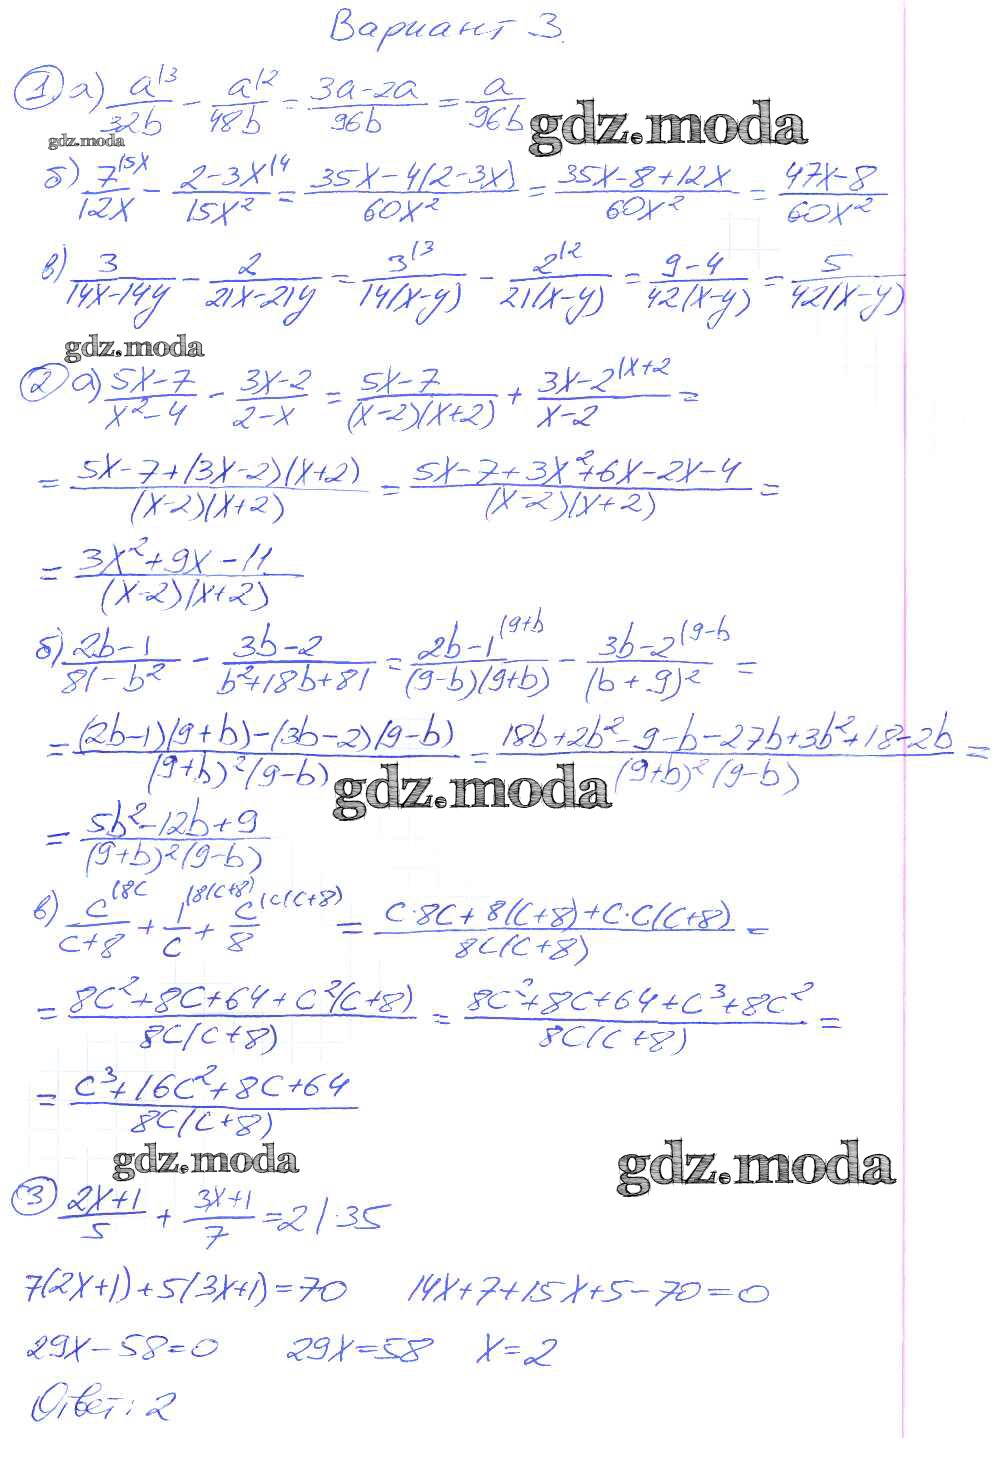 Вариант 3.
1) а) a^{|3}/32b − a^{|2}/48b = (3a−2a)/96b = a/96b
gdz.moda
gdz.moda
б) 7^{|5x}/12x − (2−3x^{|4})/15x² = (35x−4(2−3x))/60x² = (35x−8+12x)/60x² = (47x−8)/60x²
в) 3/(14x−14y) − 2/(21x−21y) = 3^{|3}/14(x−y) − 2^{|2}/21(x−y) = (9−4)/42(x−y) = 5/42(x−y)
gdz.moda
2) а) (5x−7)/(x²−4) − (3x−2)/(2−x) = (5x−7)/(x−2)(x+2) + (3x−2^{|x+2})/(x−2) =
= (5x−7+(3x−2)(x+2))/(x−2)(x+2) = (5x−7+3x²+6x−2x−4)/(x−2)(x+2) =
= (3x²+9x−11)/(x−2)(x+2)
б) (2b−1)/(81−b²) − (3b−2)/(b²+18b+81) = (2b−1^{(9+b})/(9−b)(9+b) − (3b−2^{(9−b})/(b+9)² =
= ((2b−1)(9+b)−(3b−2)(9−b))/(9+b)²(9−b) = (18b+2b²−9−b−27b+3b²+18−2b)/(9+b)²(9−b) =
gdz.moda
= (5b²−12b+9)/(9+b)²(9−b)
в) c^{(8c}/(c+8) + 1^{(8(c+8)}/c + c^{(c(c+8)}/8 = (c·8c+8(c+8)+c·c(c+8))/8c(c+8) =
= (8c²+8c+64+c²(c+8))/8c(c+8) = (8c²+8c+64+c³+8c²)/8c(c+8) =
= (c³+16c²+8c+64)/8c(c+8)
gdz.moda
gdz.moda
3) (2x+1)/5 + (3x+1)/7 = 2 |·35
7(2x+1)+5(3x+1)=70 14x+7+15x+5−70=0
29x−58=0 29x=58 x=2
Ответ: 2